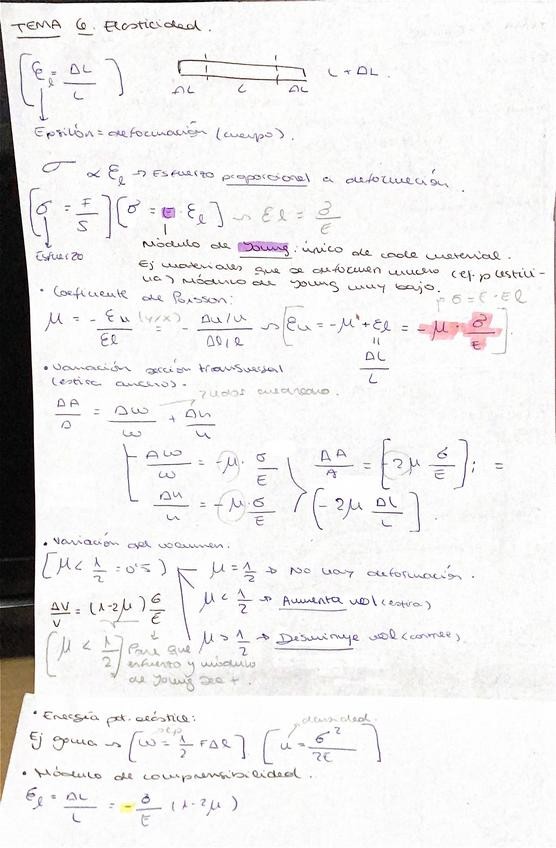 TEMA 6. Elasticidad.
[ε_l = ΔL/L] L + ΔL.
ΔL L ΔL
Epsilón = deformación (cuerpo).
σ ∝ ε_l → Esfuerzo proporcional a deformación.
[σ = F/S] [σ = E · ε_l] → εl = σ/E
Esfuerzo Módulo de Young: único de cada material.
Ej materiales que se deforman mucho (ej. plastilina) módulo de Young muy bajo.
• Coeficiente de Poisson: σ = E · εl
μ = - εu/εl (y/x) = - Δu/u / Δl/l → [εu = -μ · εl = -μ · σ/E]
ΔL/L
• Variación sección transversal
(estira ancero). lados cuadrado.
ΔA/A = Δw/w + Δu/u
Δw/w = -μ · σ/E ΔA/A = [-2μ σ/E]; =
Δu/u = -μ · σ/E [-2μ ΔL/L].
• Variación del volumen.
[μ < 1/2 = 0'5] μ = 1/2 → No hay deformación.
ΔV/V = (1-2μ) σ/E μ < 1/2 → Aumenta vol (estira)
[μ < 1/2] Para que μ > 1/2 → Desminuye vol
esfuerzo y módulo
de Young sea +.
• Energía pot. elástica: densidad.
Ej goma → [W = 1/2 FΔl] [u = σ²/2E]
• Módulo de comprensibilidad.
ε_l = ΔL/L = - σ/E (1-2μ)